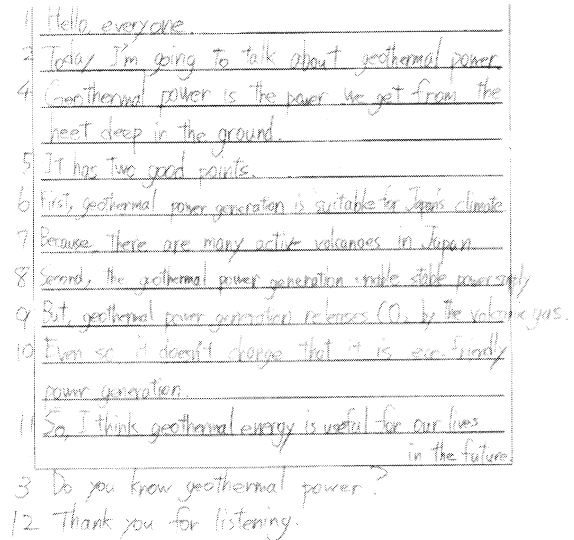 1 Hello, everyone.
2 Today I'm going to talk about geothermal power.
4 Geothermal power is the power we get from the
heet deep in the ground.
5 It has two good points.
6 First, geothermal power generation is suitable for Japan's climate
7 Because There are many active volcanoes in Japan
8 Second, the geothermal power generation enable stable power supply
9 But, geothermal power generation releases CO₂ by the volcanic gas.
10 Even so it doesn't change that it is eco-friendly
power generation.
11 So, I think geothermal energy is useful for our lives
in the future.
3 Do you know geothermal power?
12 Thank you for listening.